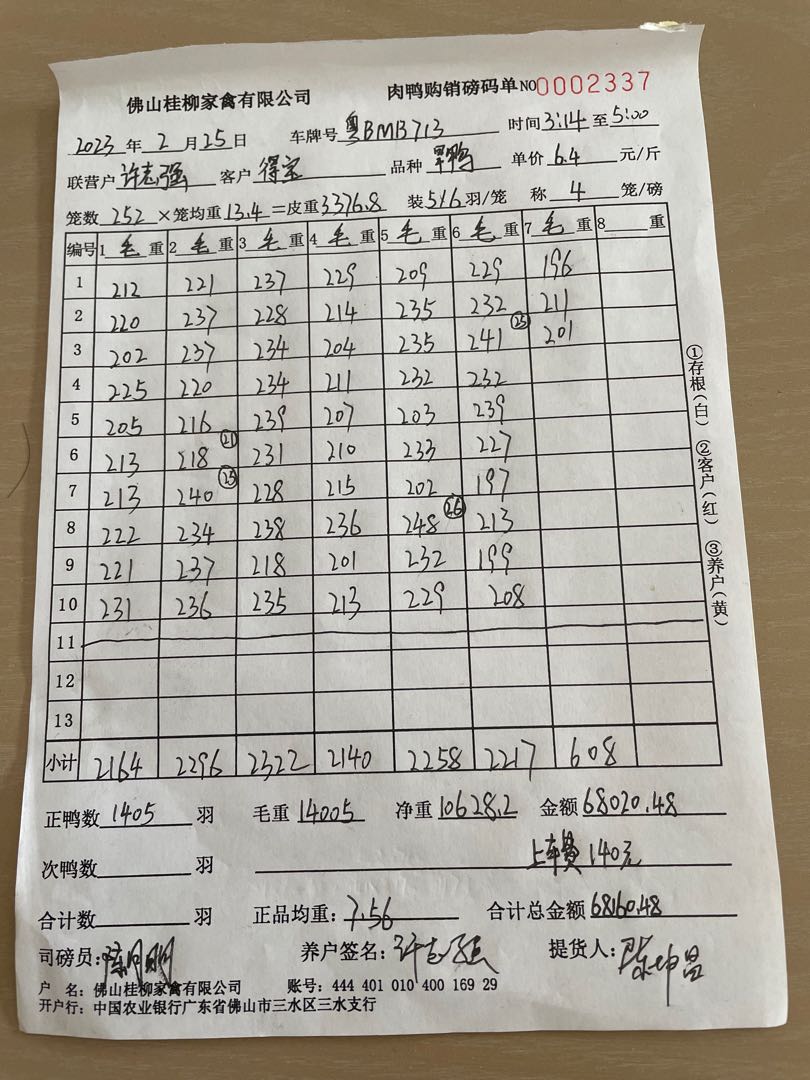 佛山桂柳家禽有限公司 肉鸭购销磅码单 NO 0002337
2023 年 2 月 25 日 车牌号 粤BMB713 时间 3:14 至 5:00
联营户 许志强 客户 得宝 品种 旱鸭 单价 6.4 元/斤
笼数 252 ×笼均重 13.4 =皮重 3376.8 装 5/6 羽/笼 称 4 笼/磅
编号 1 毛 重 2 毛 重 3 毛 重 4 毛 重 5 毛 重 6 毛 重 7 毛 重 8 重
1 212 221 237 229 209 229 196
2 220 237 228 214 235 232 211
3 202 237 234 204 235 241 ㉕ 201
4 225 220 234 211 232 232
5 205 216 239 207 203 239
6 213 218 ㉑ 231 210 233 227
7 213 240 ㉕ 228 215 202 197
8 222 234 238 236 248 ㉖ 213
9 221 237 218 201 232 199
10 231 236 235 213 229 208
11
12
13
小计 2164 2296 2322 2140 2258 2217 608
正鸭数 1405 羽 毛重 14005 净重 10628.2 金额 68020.48
次鸭数 羽 上车费 140元
合计数 羽 正品均重: 7.56 合计总金额 68160.48
司磅员: 养户签名: 许志强 提货人: 陈坤昌
户 名: 佛山桂柳家禽有限公司 账号: 444 401 010 400 169 29
开户行: 中国农业银行广东省佛山市三水区三水支行
①存根(白) ②客户(红) ③养户(黄)